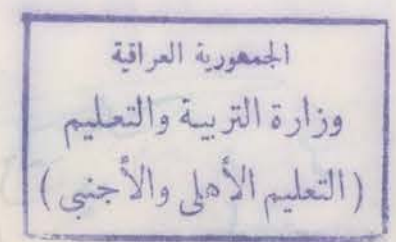 الجمهورية العراقية
وزارة التربية والتعليم
( التعليم الأهلي والأجنبي )